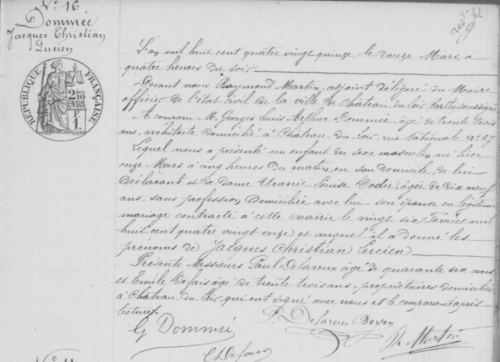 N° 16
Dommée
Jacques Christian
Lucien
RÉPUBLIQUE FRANÇAISE
L'an mil huit cent quatre vingt quinze le douze Mars, à
quatre heures du soir
Devant nous Raymond Martin, adjoint délégué du Maire
officier de l'état civil de la ville de Château du Loir
A comparu M. Georges Louis Arthur Dommée âgé de trente trois
ans, architecte domicilié à Château du Loir, rue Nationale n°
Lequel nous a présenté un enfant du sexe masculin né hier
onze Mars à cinq heures du matin en son domicile de lui
déclarant et de dame Uranie Louise Hodée âgée de dix neuf
ans, sans profession domiciliée avec lui, son épouse en légitime
mariage contracté à cette mairie le vingt six Février mil
huit cent quatre vingt onze et auquel il a donné les
prénoms de Jacques Christian Lucien
Présents Messieurs Paul Delareux âgé de quarante six ans
et Emile Defais âgé de trente trois ans, propriétaires domiciliés
à Château du Loir qui ont signé avec nous et le comparant après
lecture.
G Dommée
R. Martin